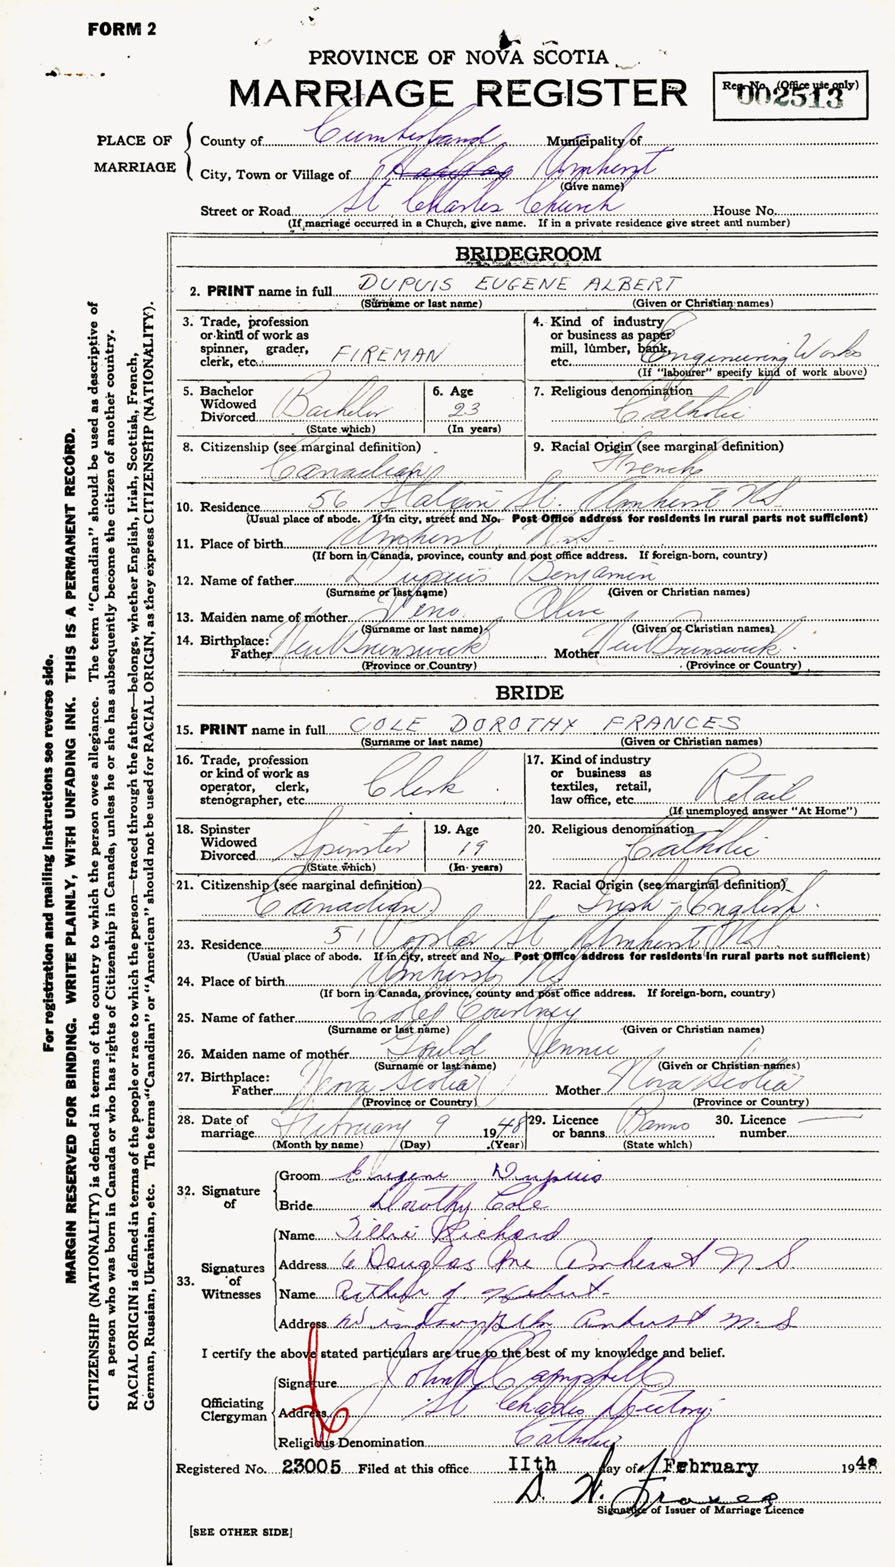 FORM 2
PROVINCE OF NOVA SCOTIA
MARRIAGE REGISTER
Reg. No. (Office use only)
002513
PLACE OF MARRIAGE
County of Cumberland Municipality of
City, Town or Village of Amherst
(Give name)
Street or Road St Charles Church House No.
(If marriage occurred in a Church, give name. If in a private residence give street and number)
BRIDEGROOM
2. PRINT name in full DUPUIS EUGENE ALBERT
(Surname or last name) (Given or Christian names)
3. Trade, profession or kind of work as spinner, grader, clerk, etc. FIREMAN
4. Kind of industry or business as paper mill, lumber, bank, etc. Engineering Works
(If "labourer" specify kind of work above)
5. Bachelor Widowed Divorced Bachelor
(State which)
6. Age 23
(In years)
7. Religious denomination Catholic
8. Citizenship (see marginal definition) Canadian
9. Racial Origin (see marginal definition) French
10. Residence 56 St. Amherst N.S.
(Usual place of abode. If in city, street and No. Post Office address for residents in rural parts not sufficient)
11. Place of birth Amherst N.S.
(If born in Canada, province, county and post office address. If foreign-born, country)
12. Name of father Dupuis Benjamin
(Surname or last name) (Given or Christian names)
13. Maiden name of mother
(Surname or last name) (Given or Christian names)
14. Birthplace:
Father New Brunswick Mother New Brunswick
(Province or Country) (Province or Country)
BRIDE
15. PRINT name in full COLE DOROTHY FRANCES
(Surname or last name) (Given or Christian names)
16. Trade, profession or kind of work as operator, clerk, stenographer, etc. Clerk
17. Kind of industry or business as textiles, retail, law office, etc. Retail
(If unemployed answer "At Home")
18. Spinster Widowed Divorced Spinster
(State which)
19. Age 19
(In years)
20. Religious denomination Catholic
21. Citizenship (see marginal definition) Canadian
22. Racial Origin (see marginal definition) Irish - English.
23. Residence 51 Poplar St Amherst N.S.
(Usual place of abode. If in city, street and No. Post Office address for residents in rural parts not sufficient)
24. Place of birth Amherst N.S.
(If born in Canada, province, county and post office address. If foreign-born, country)
25. Name of father Cole Courtney
(Surname or last name) (Given or Christian names)
26. Maiden name of mother Gould Jennie
(Surname or last name) (Given or Christian names)
27. Birthplace:
Father Nova Scotia Mother Nova Scotia
(Province or Country) (Province or Country)
28. Date of marriage February 9 1948
(Month by name) (Day) (Year)
29. Licence or banns Banns
(State which)
30. Licence number
32. Signature of
Groom Eugene Dupuis
Bride Dorothy Cole
33. Signatures of Witnesses
Name Tillie Richard
Address 6 Douglas Ave Amherst N S
Name Arthur J. Hebert
Address Amherst N. S
I certify the above stated particulars are true to the best of my knowledge and belief.
Officiating Clergyman
Signature John Campbell
Address St Charles Rectory
Religious Denomination Catholic
Registered No. 23005 Filed at this office 11th day of February 1948
Signature of Issuer of Marriage Licence
[SEE OTHER SIDE]
For registration and mailing instructions see reverse side.
MARGIN RESERVED FOR BINDING. WRITE PLAINLY, WITH UNFADING INK. THIS IS A PERMANENT RECORD.
CITIZENSHIP (NATIONALITY) is defined in terms of the country to which the person owes allegiance. The term "Canadian" should be used as descriptive of
a person who was born in Canada or who has rights of Citizenship in Canada, unless he or she has subsequently become the citizen of another country.
RACIAL ORIGIN is defined in terms of the people or race to which the person—traced through the father—belongs, whether English, Irish, Scottish, French,
German, Russian, Ukrainian, etc. The terms "Canadian" or "American" should not be used for RACIAL ORIGIN, as they express CITIZENSHIP (NATIONALITY).